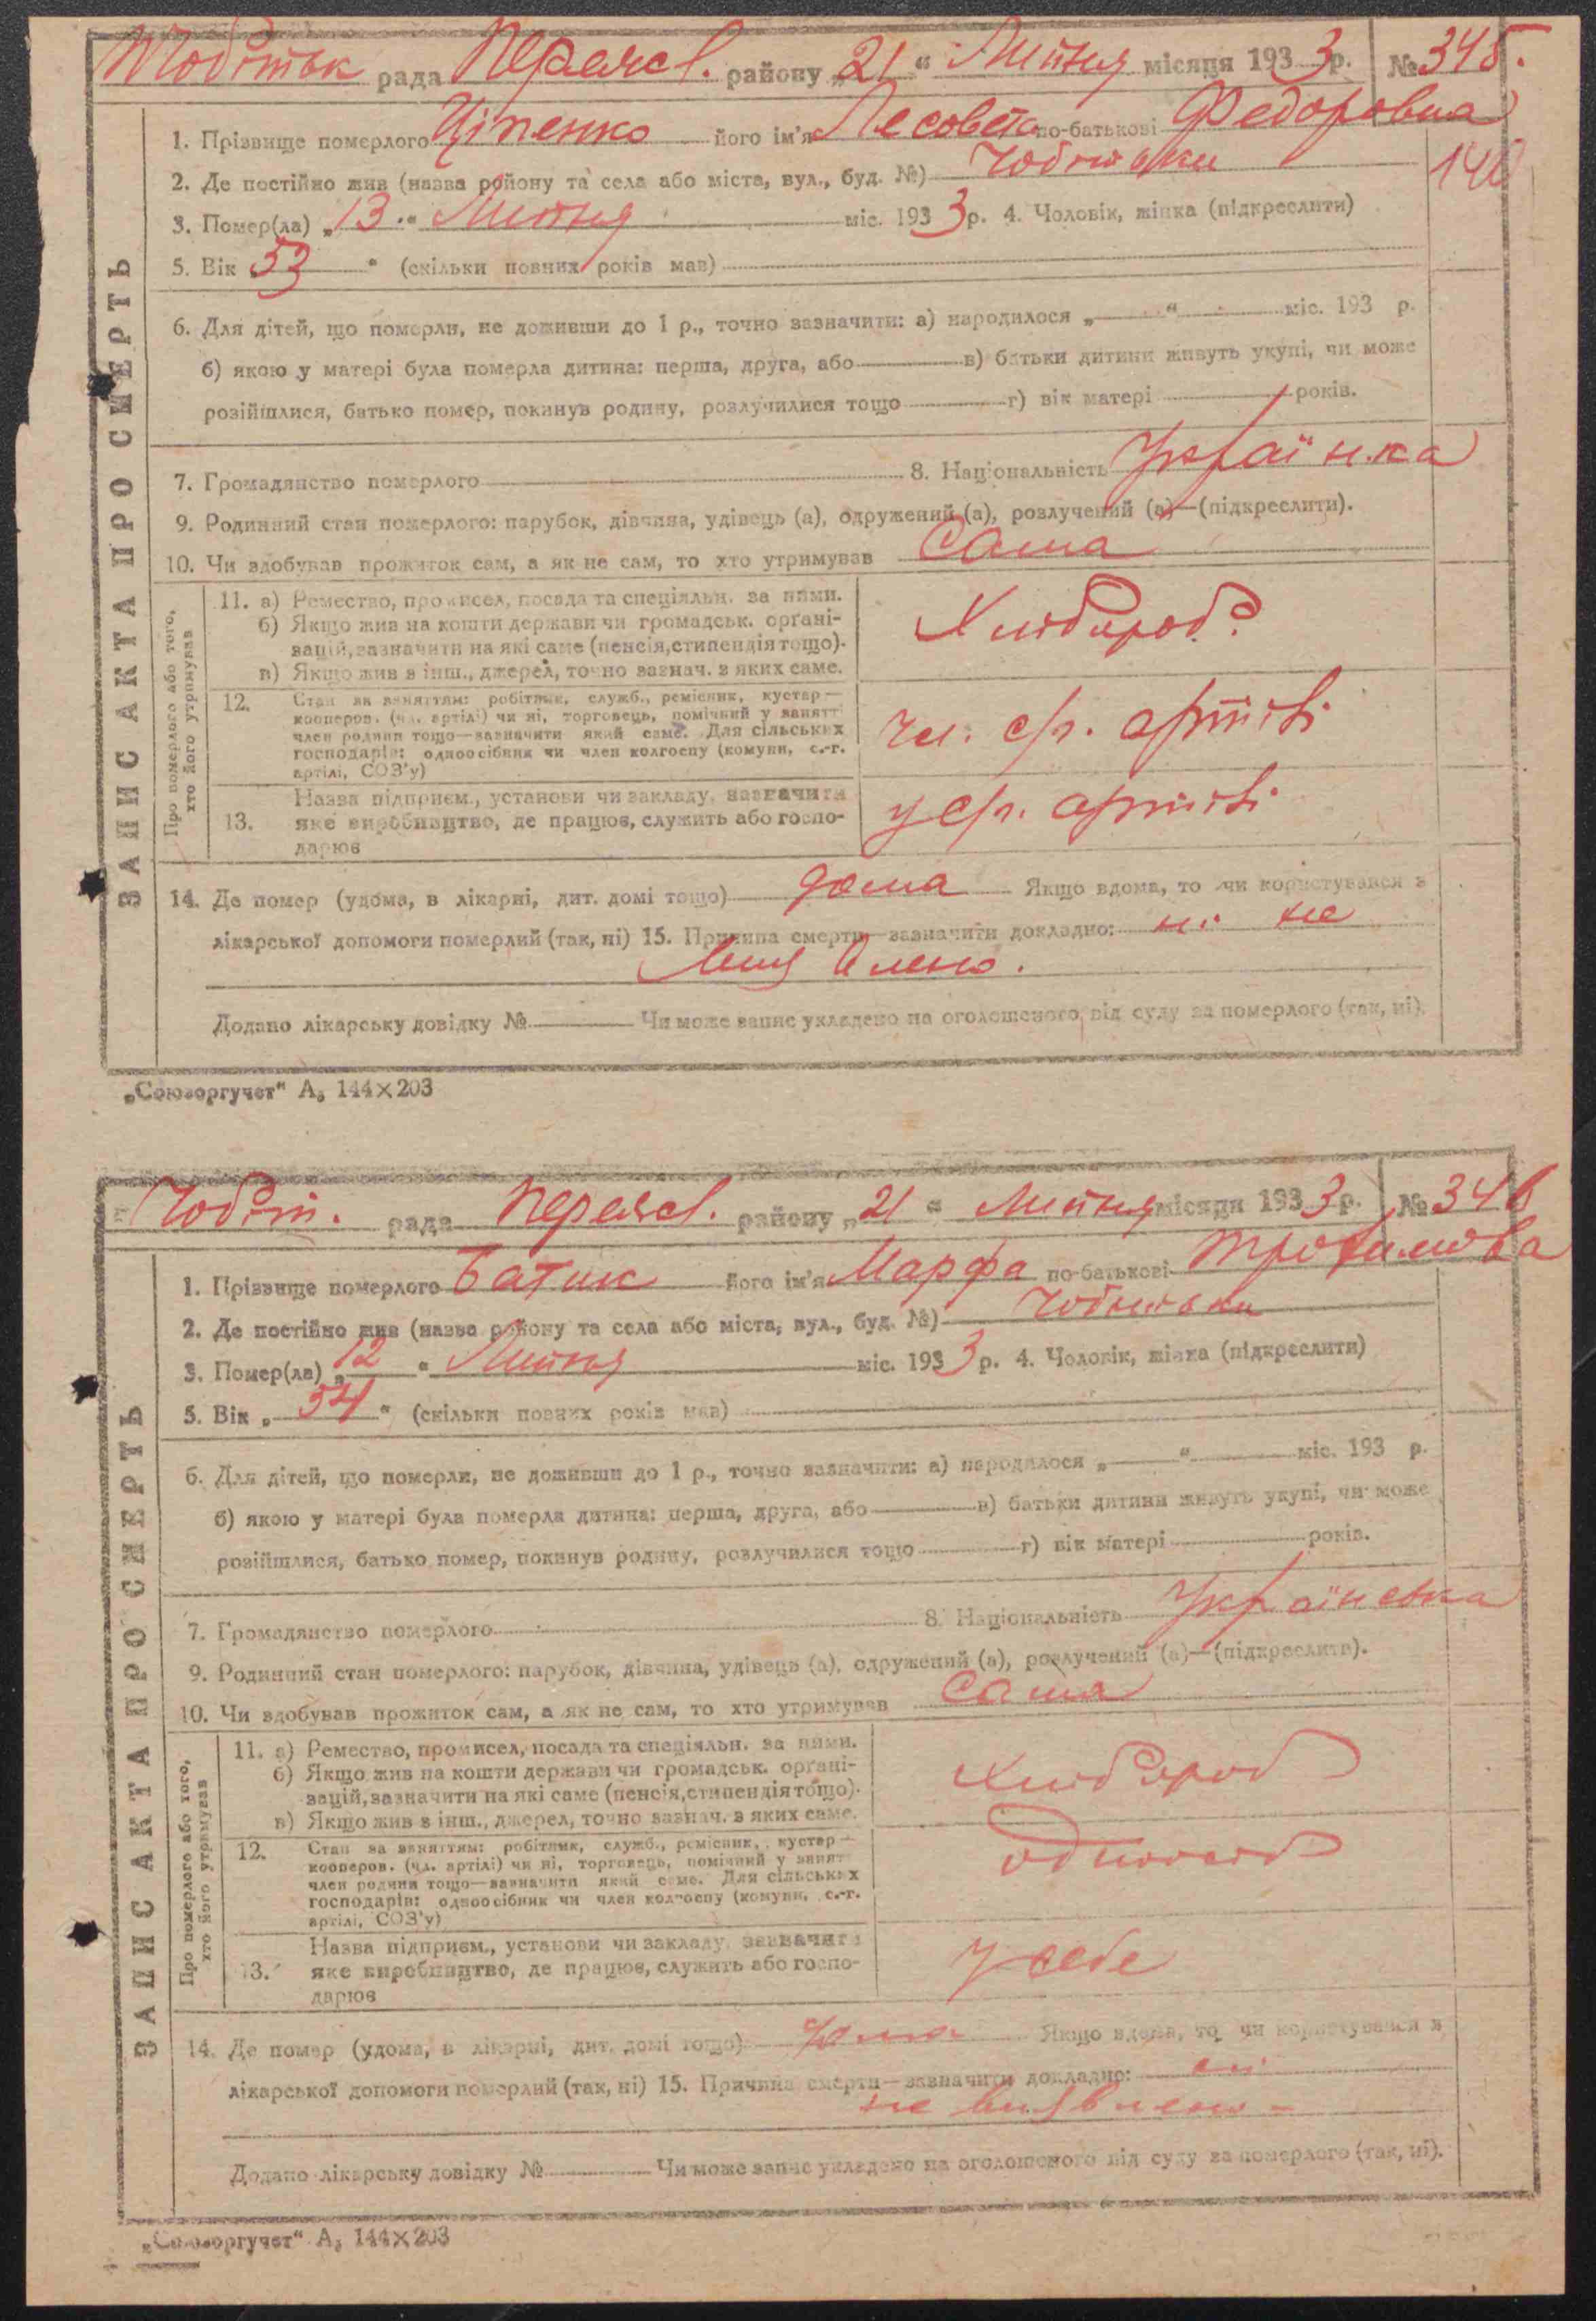 Чобітьк рада Переясл. району „21“ Липня місяця 1933 р. № 345.
1. Прізвище померлого Ціпенко його ім'я Лесовета по-батькові Федоровна
140
2. Де постійно жив (назва району та села або міста, вул., буд. №) Чобітьки
3. Помер(ла) „13“ Липня міс. 1933 р. 4. Чоловік, жінка (підкреслити)
5. Вік „53“ (скільки повних років мав)
6. Для дітей, що померли, не доживши до 1 р., точно зазначити: а) народилося „ “ міс. 193 р.
б) якою у матері була померла дитина: перша, друга, або в) батьки дитини живуть укупі, чи може
розійшлися, батько помер, покинув родину, розлучилися тощо г) вік матері років.
7. Громадянство померлого 8. Національність Українка
9. Родинний стан померлого: парубок, дівчина, удівець (а), одружений (а), розлучений (а)—(підкреслити).
10. Чи здобував прожиток сам, а як не сам, то хто утримував Сама
ЗАПИС АКТА ПРО СМЕРТЬ
Про померлого або того, хто його утримував
11. а) Ремество, промисел, посада та спеціяльн. за ними.
б) Якщо жив на кошти держави чи громадськ. орґані-
зацій, зазначити на які саме (пенсія, стипендія тощо).
в) Якщо жив з інш., джерел, точно зазнач. з яких саме.
Хлібороб
12. Стан за заняттям: робітник, служб., ремісник, кустар—
кооперов. (чл. артілі) чи ні, торговець, помічний у занятті
член родини тощо—зазначити який саме. Для сільських
господарів: одноосібник чи член колгоспу (комуни, с.-г.
артілі, СОЗ'у)
чл. с/г. артілі
13. Назва підприєм., установи чи закладу, зазначити
яке виробництво, де працює, служить або госпо-
дарює
у с/г. артілі
14. Де помер (удома, в лікарні, дит. домі тощо) дома Якщо вдома, то чи користувався з
лікарської допомоги померлий (так, ні) 15. Причина смерти—зазначити докладно: ні не
Додано лікарську довідку № Чи може запис укладено на оголошеного від суду за померлого (так, ні).
„Союзоргучет“ А₅ 144×203
Чобіт. рада Переясл. району „21“ Липня місяця 1933 р. № 346
1. Прізвище померлого Батик його ім'я Марфа по-батькові Трофимовa
2. Де постійно жив (назва району та села або міста, вул., буд. №) Чобітьки
3. Помер(ла) „12“ Липня міс. 1933 р. 4. Чоловік, жінка (підкреслити)
5. Вік „54“ (скільки повних років мав)
6. Для дітей, що померли, не доживши до 1 р., точно зазначити: а) народилося „ “ міс. 193 р.
б) якою у матері була померла дитина: перша, друга, або в) батьки дитини живуть укупі, чи може
розійшлися, батько помер, покинув родину, розлучилися тощо г) вік матері років.
7. Громадянство померлого 8. Національність Українська
9. Родинний стан померлого: парубок, дівчина, удівець (а), одружений (а), розлучений (а)—(підкреслити).
10. Чи здобував прожиток сам, а як не сам, то хто утримував Сама
ЗАПИС АКТА ПРО СМЕРТЬ
Про померлого або того, хто його утримував
11. а) Ремество, промисел, посада та спеціяльн. за ними.
б) Якщо жив на кошти держави чи громадськ. орґані-
зацій, зазначити на які саме (пенсія, стипендія тощо).
в) Якщо жив з інш., джерел, точно зазнач. з яких саме.
Хлібороб
12. Стан за заняттям: робітник, служб., ремісник, кустар—
кооперов. (чл. артілі) чи ні, торговець, помічний у занятті
член родини тощо—зазначити який саме. Для сільських
господарів: одноосібник чи член колгоспу (комуни, с.-г.
артілі, СОЗ'у)
13. Назва підприєм., установи чи закладу, зазначити
яке виробництво, де працює, служить або госпо-
дарює
у себе
14. Де помер (удома, в лікарні, дит. домі тощо) дома Якщо вдома, то чи користувався з
лікарської допомоги померлий (так, ні) 15. Причина смерти—зазначити докладно: ні
не виявлено
Додано лікарську довідку № Чи може запис укладено на оголошеного від суду за померлого (так, ні).
„Союзоргучет“ А₅ 144×203